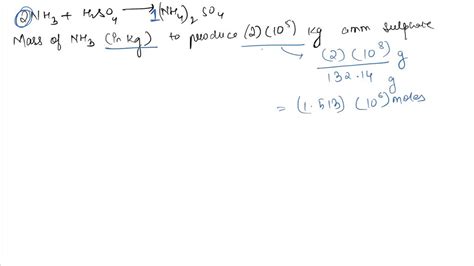 2NH3 + H2SO4 → 1(NH4)2SO4
Mass of NH3 (in kg) to produce (2)(10^5) kg amm sulphate
(2)(10^8) g
132.14 g
= (1.513)(10^6) moles